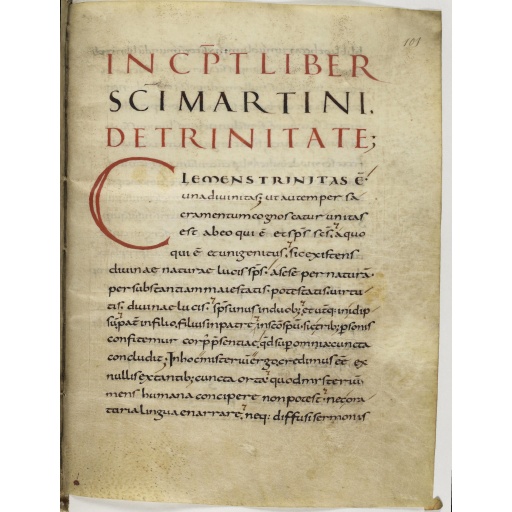 101
INCP̄T LIBER
SC̄I MARTINI.
DE TRINITATE;
CLEMENS TRINITAS Ē·
una divinitas; ut autem per sa
cramentum cognoscatur unitas
est ab eo qui ē et sp̄s sc̄s, a quo
qui ē et unigenitus, sic existens
divinae naturae lucis sp̄s· a sese per naturā·
per substantiam maiestatis· potestatis· virtu
tis; divinae lucis; sp̄s unus in duob;
sup pat̄ in filio, filius in patre, in sc̄o sp̄u
confitemur
concludit; In hoc misteriū ergo credimus
nullis extantib; cuncta orta quod misteriū
mens humana concipere non potest, nec ora
toria lingua enarrare, neq; diffusi sermonis